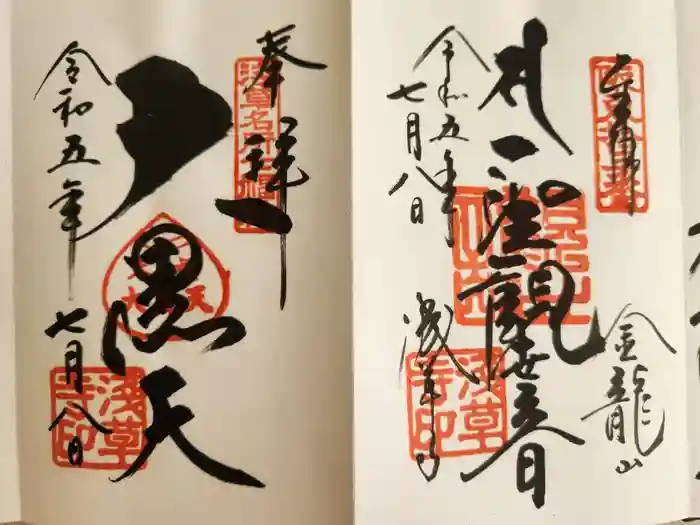 金龍山
聖観世音
令和五年
七月八日
浅草寺
淺草寺印
奉拝
大黒天
令和五年
七月八日
淺草寺印